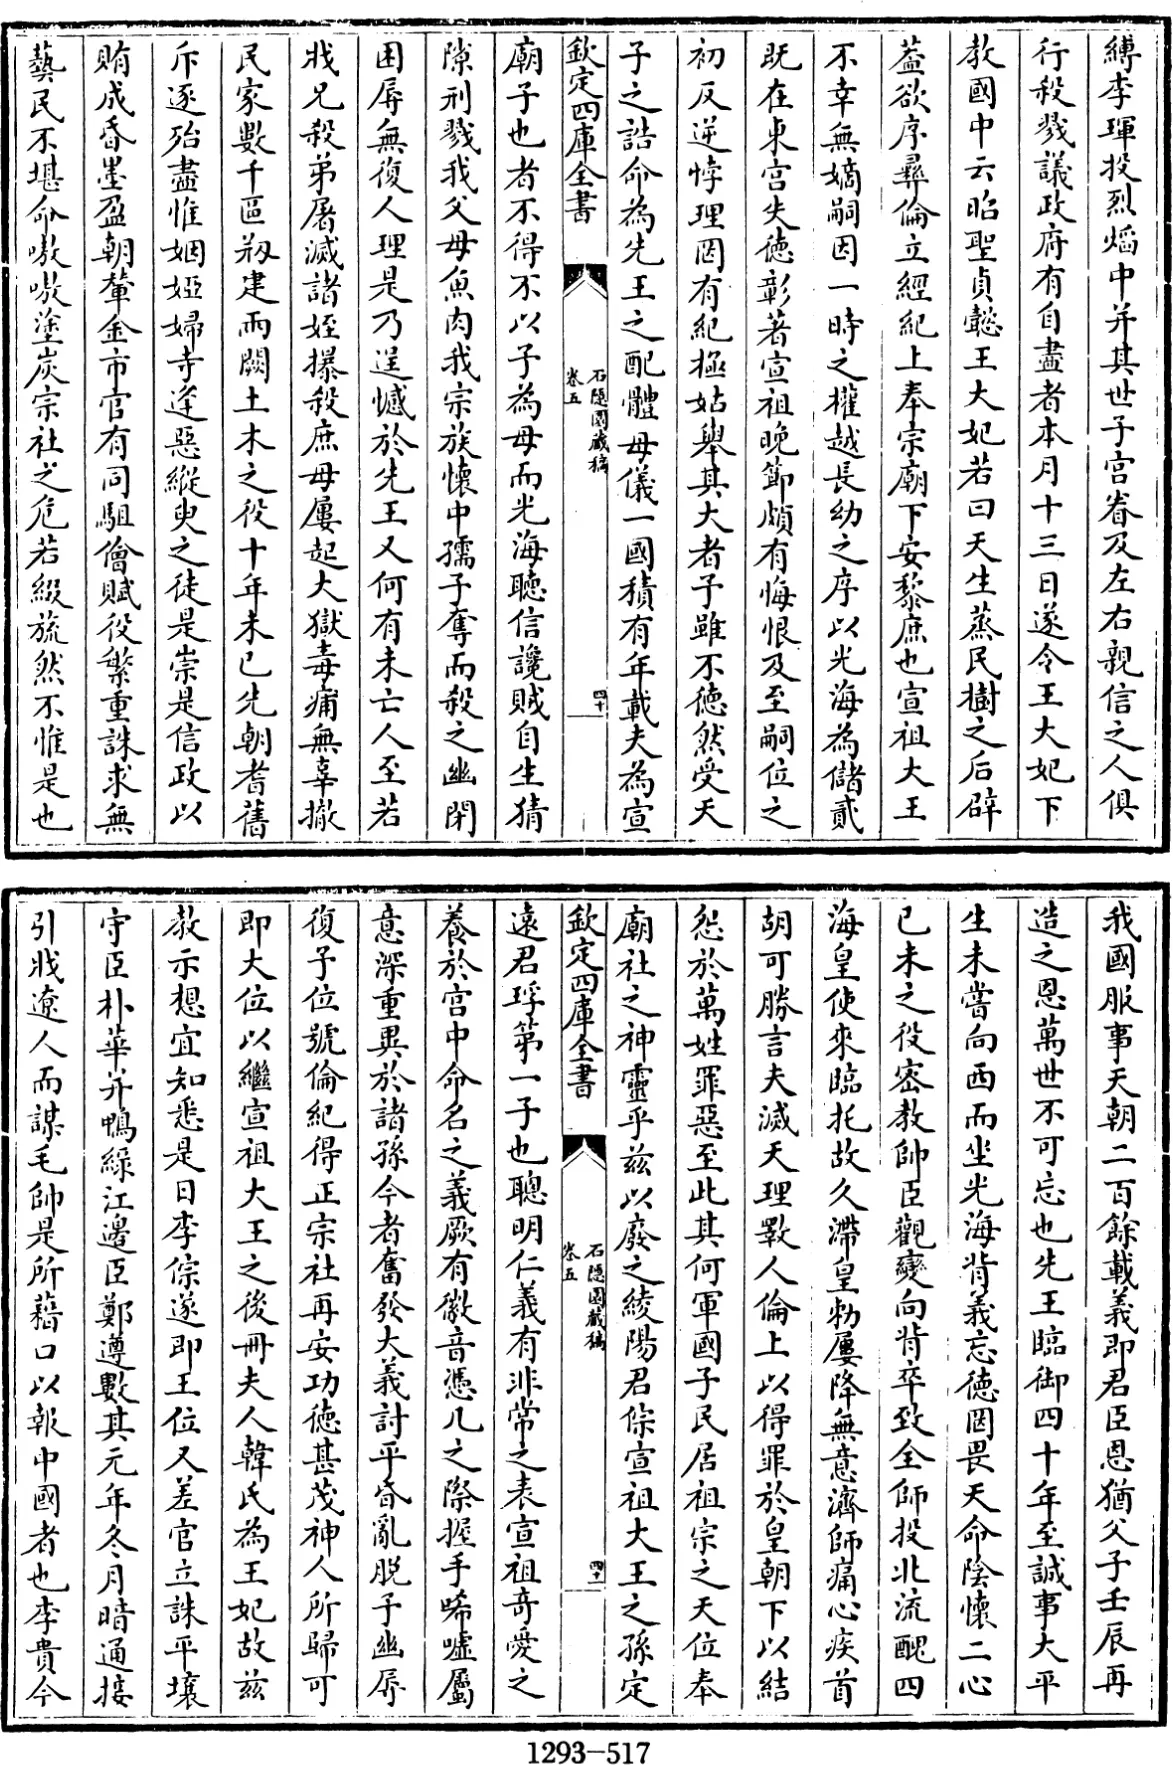 縛李琿投烈熖中并其世子宮眷及左右親信之人俱
行殺戮議政府有自盡者本月十三日遂令王大妃下
教國中云昭聖貞懿王大妃若曰天生蒸民樹之后辟
葢欲序彞倫立經紀上奉宗廟下安黎庶也宣祖大王
不幸無嫡嗣因一時之權越長幼之序以光海為儲貳
既在東宮失徳彰著宣祖晚節頗有悔恨及至嗣位之
初反逆悖理罔有紀極姑舉其大者子雖不徳然受天
子之誥命為先王之配體母儀一國積有年載夫為宣
欽定四庫全書
石隱園藏稿
卷五
四十
廟子也者不得不以子為母而光海聽信讒賊自生猜
隙刑戮我父母魚肉我宗族懷中孺子奪而殺之幽閉
困辱無復人理是乃逞憾於先王又何有未亡人至若
戕兄殺弟屠滅諸姪㩧殺庶母屢起大獄毒痡無辜撤
民家數千區刱建兩闕土木之役十年未已先朝耆舊
斥逐殆盡惟姻婭婦寺逢惡縱臾之徒是崇是信政以
賄成昏墨盈朝輦金市官有同駔儈賦役繁重誅求無
藝民不堪命嗷嗷塗炭宗社之危若綴旒然不惟是也
我國服事天朝二百餘載義即君臣恩猶父子壬辰再
造之恩萬世不可忘也先王臨御四十年至誠事大平
生未嘗向西而坐光海背義忘徳罔畏天命陰懷二心
己未之役密教帥臣觀變向背卒致全師投北流醜四
海皇使來臨托故久滯皇勅屢降無意濟師痛心疾首
胡可勝言夫滅天理斁人倫上以得罪於皇朝下以結
怨於萬姓罪惡至此其何軍國子民居祖宗之天位奉
廟社之神靈乎兹以廢之綾陽君倧宣祖大王之孫定
欽定四庫全書
石隱園藏稿
卷五
四十一
遠君琈第一子也聰明仁義有非常之表宣祖竒愛之
養於宮中命名之義厥有徽音憑几之際握手唏噓屬
意深重異於諸孫今者奮發大義討平昏亂脱予幽辱
復予位號倫紀得正宗社再安功徳甚茂神人所歸可
即大位以繼宣祖大王之後冊夫人韓氏為王妃故兹
教示想宜知悉是日李倧遂即王位又差官立誅平壤
守臣朴華并鴨綠江邊臣鄭遵數其元年冬月暗通接
引戕遼人而謀毛帥是所藉口以報中國者也李貴今
1293-517